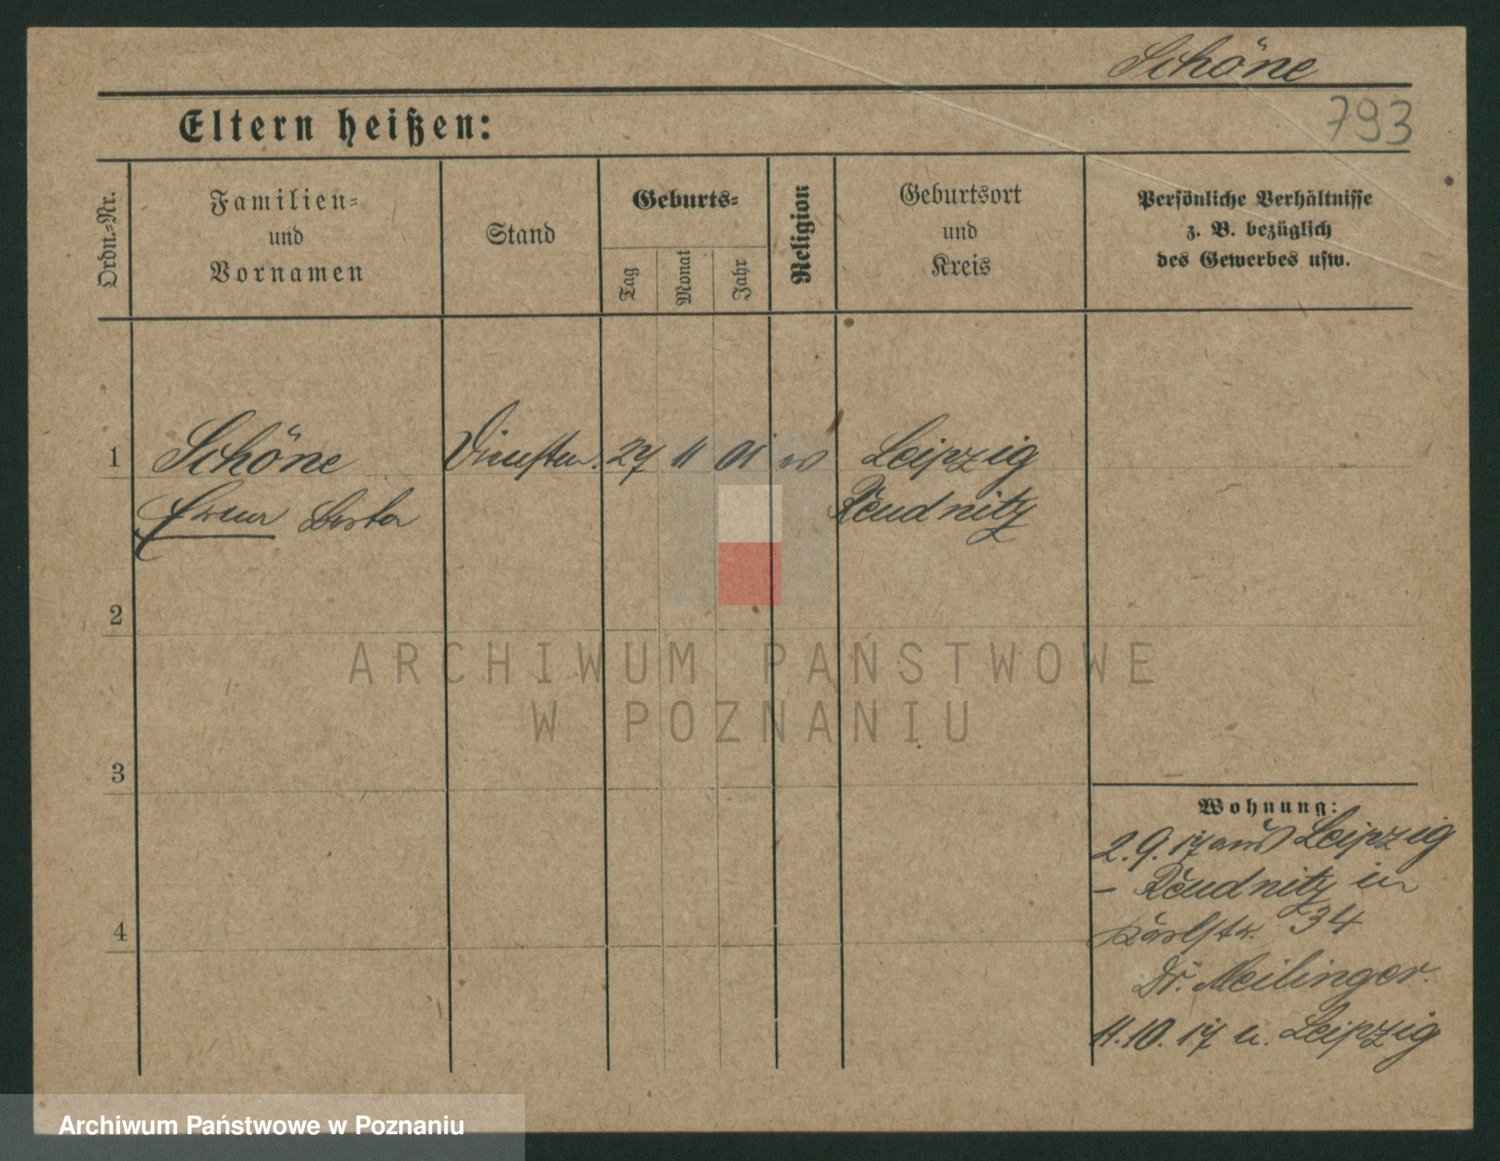 Schöne
793
Eltern heißen:
Ordn.-Nr.
Familien-
und
Vornamen
Stand
Geburts-
Tag
Monat
Jahr
Religion
Geburtsort
und
Kreis
Persönliche Verhältnisse
z. B. bezüglich
des Gewerbes usw.
1
Schöne
27 11 01
Leipzig
Reudnitz
2
3
4
Wohnung:
2.9.17 aus Leipzig
- Reudnitz in
Karlstr. 34
Dr. Meilinger.
11.10.17 n. Leipzig
ARCHIWUM PAŃSTWOWE
W POZNANIU
Archiwum Państwowe w Poznaniu